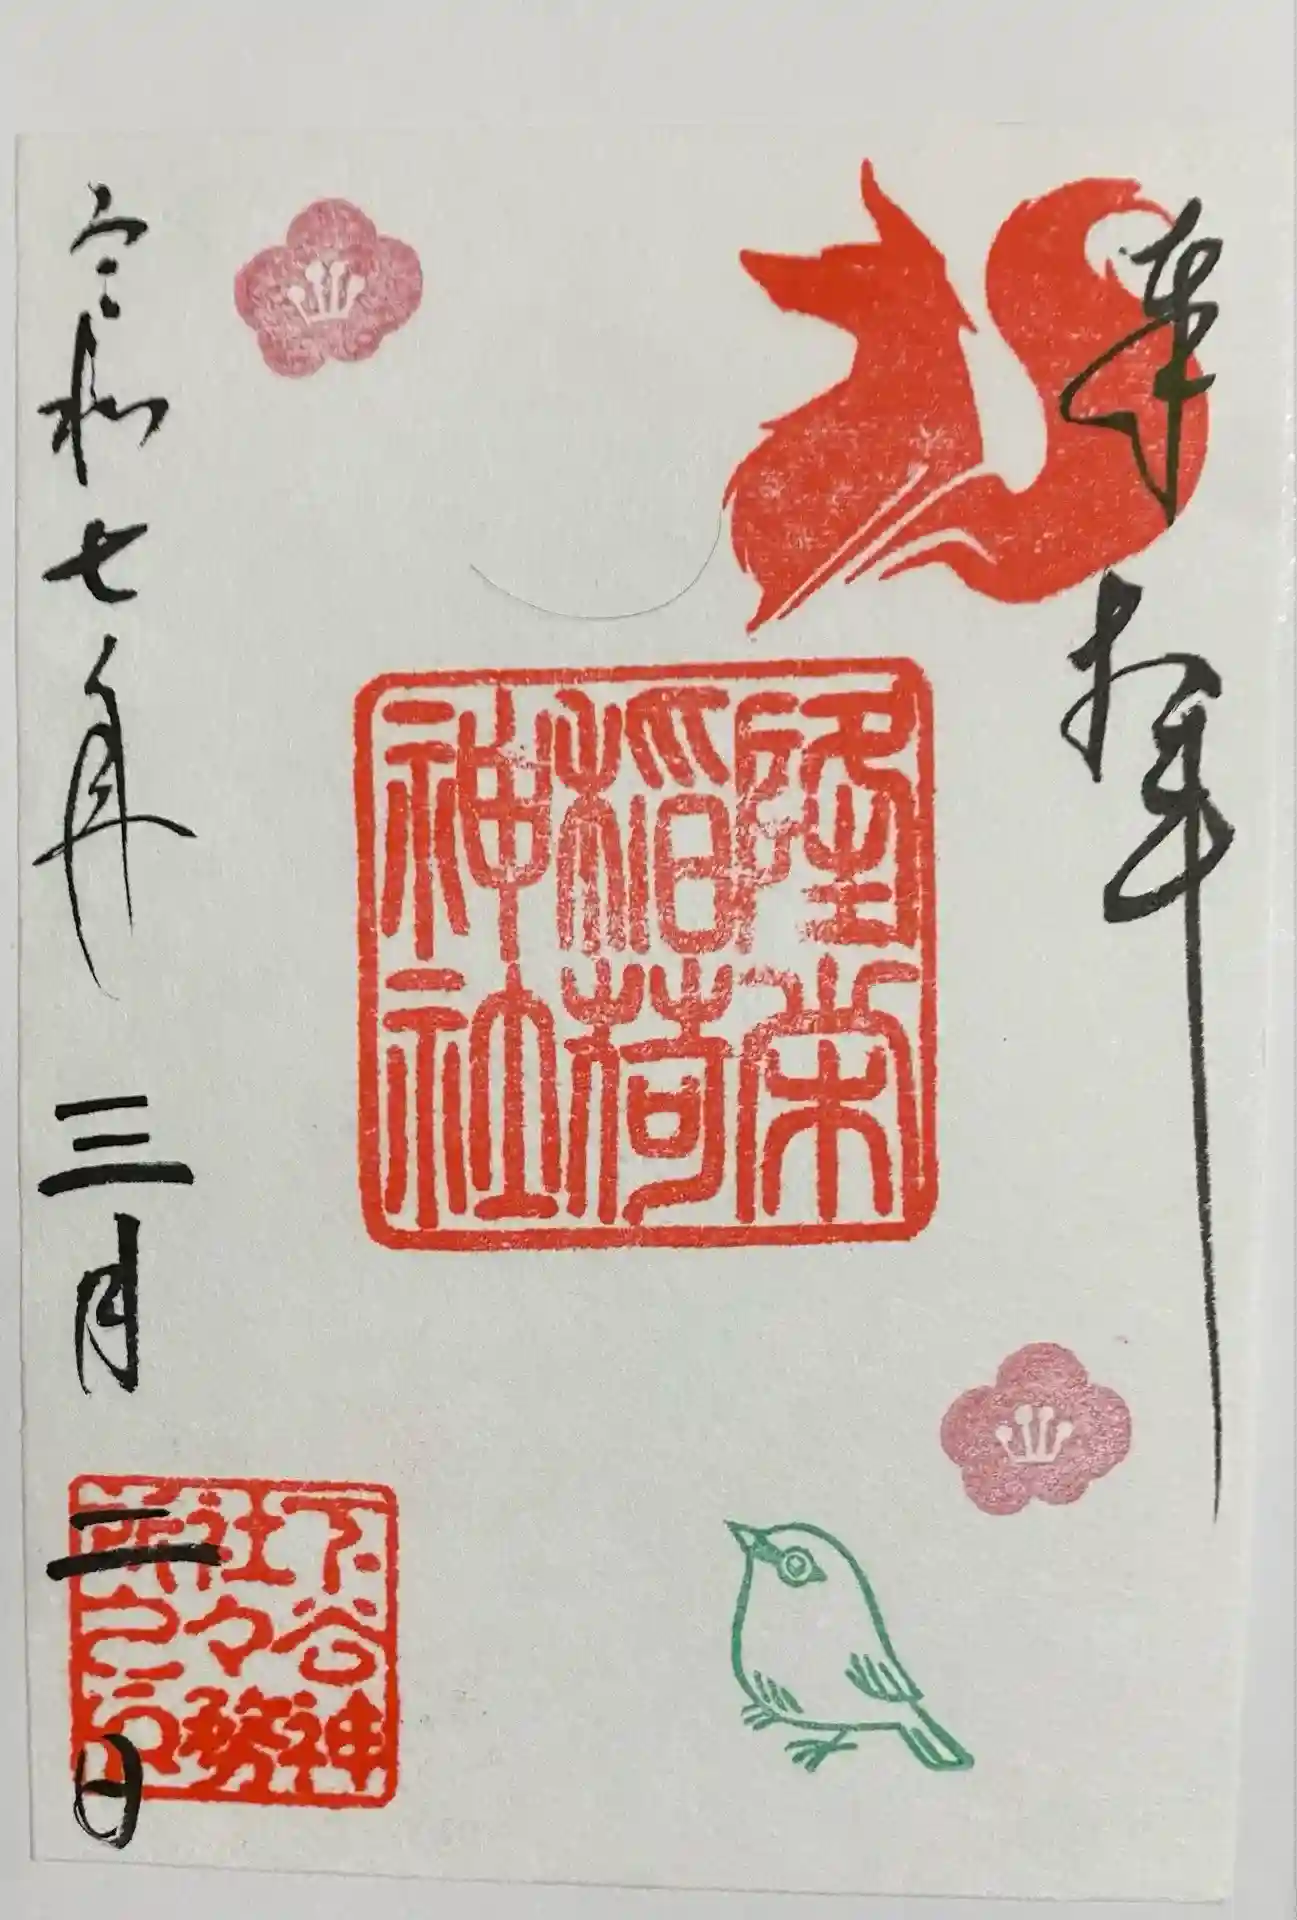 奉拝
隆栄
稲荷
神社
令和七年三月二日
下谷神
社々務
所之印